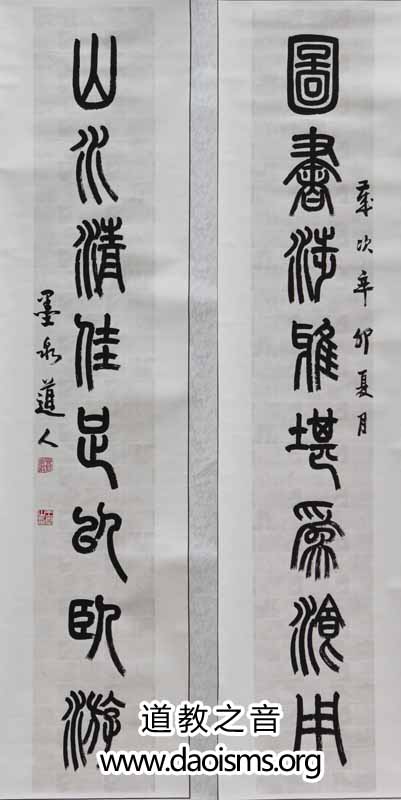 圖書雅堪為用
歲次辛卯夏月
山水清佳足以臥游
墨泉道人
道教之音
www.daoisms.org